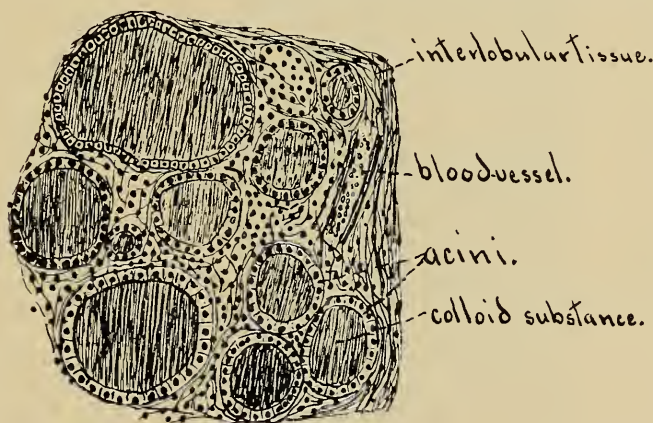 interlobular tissue.
bloodvessel.
acini.
colloid substance.